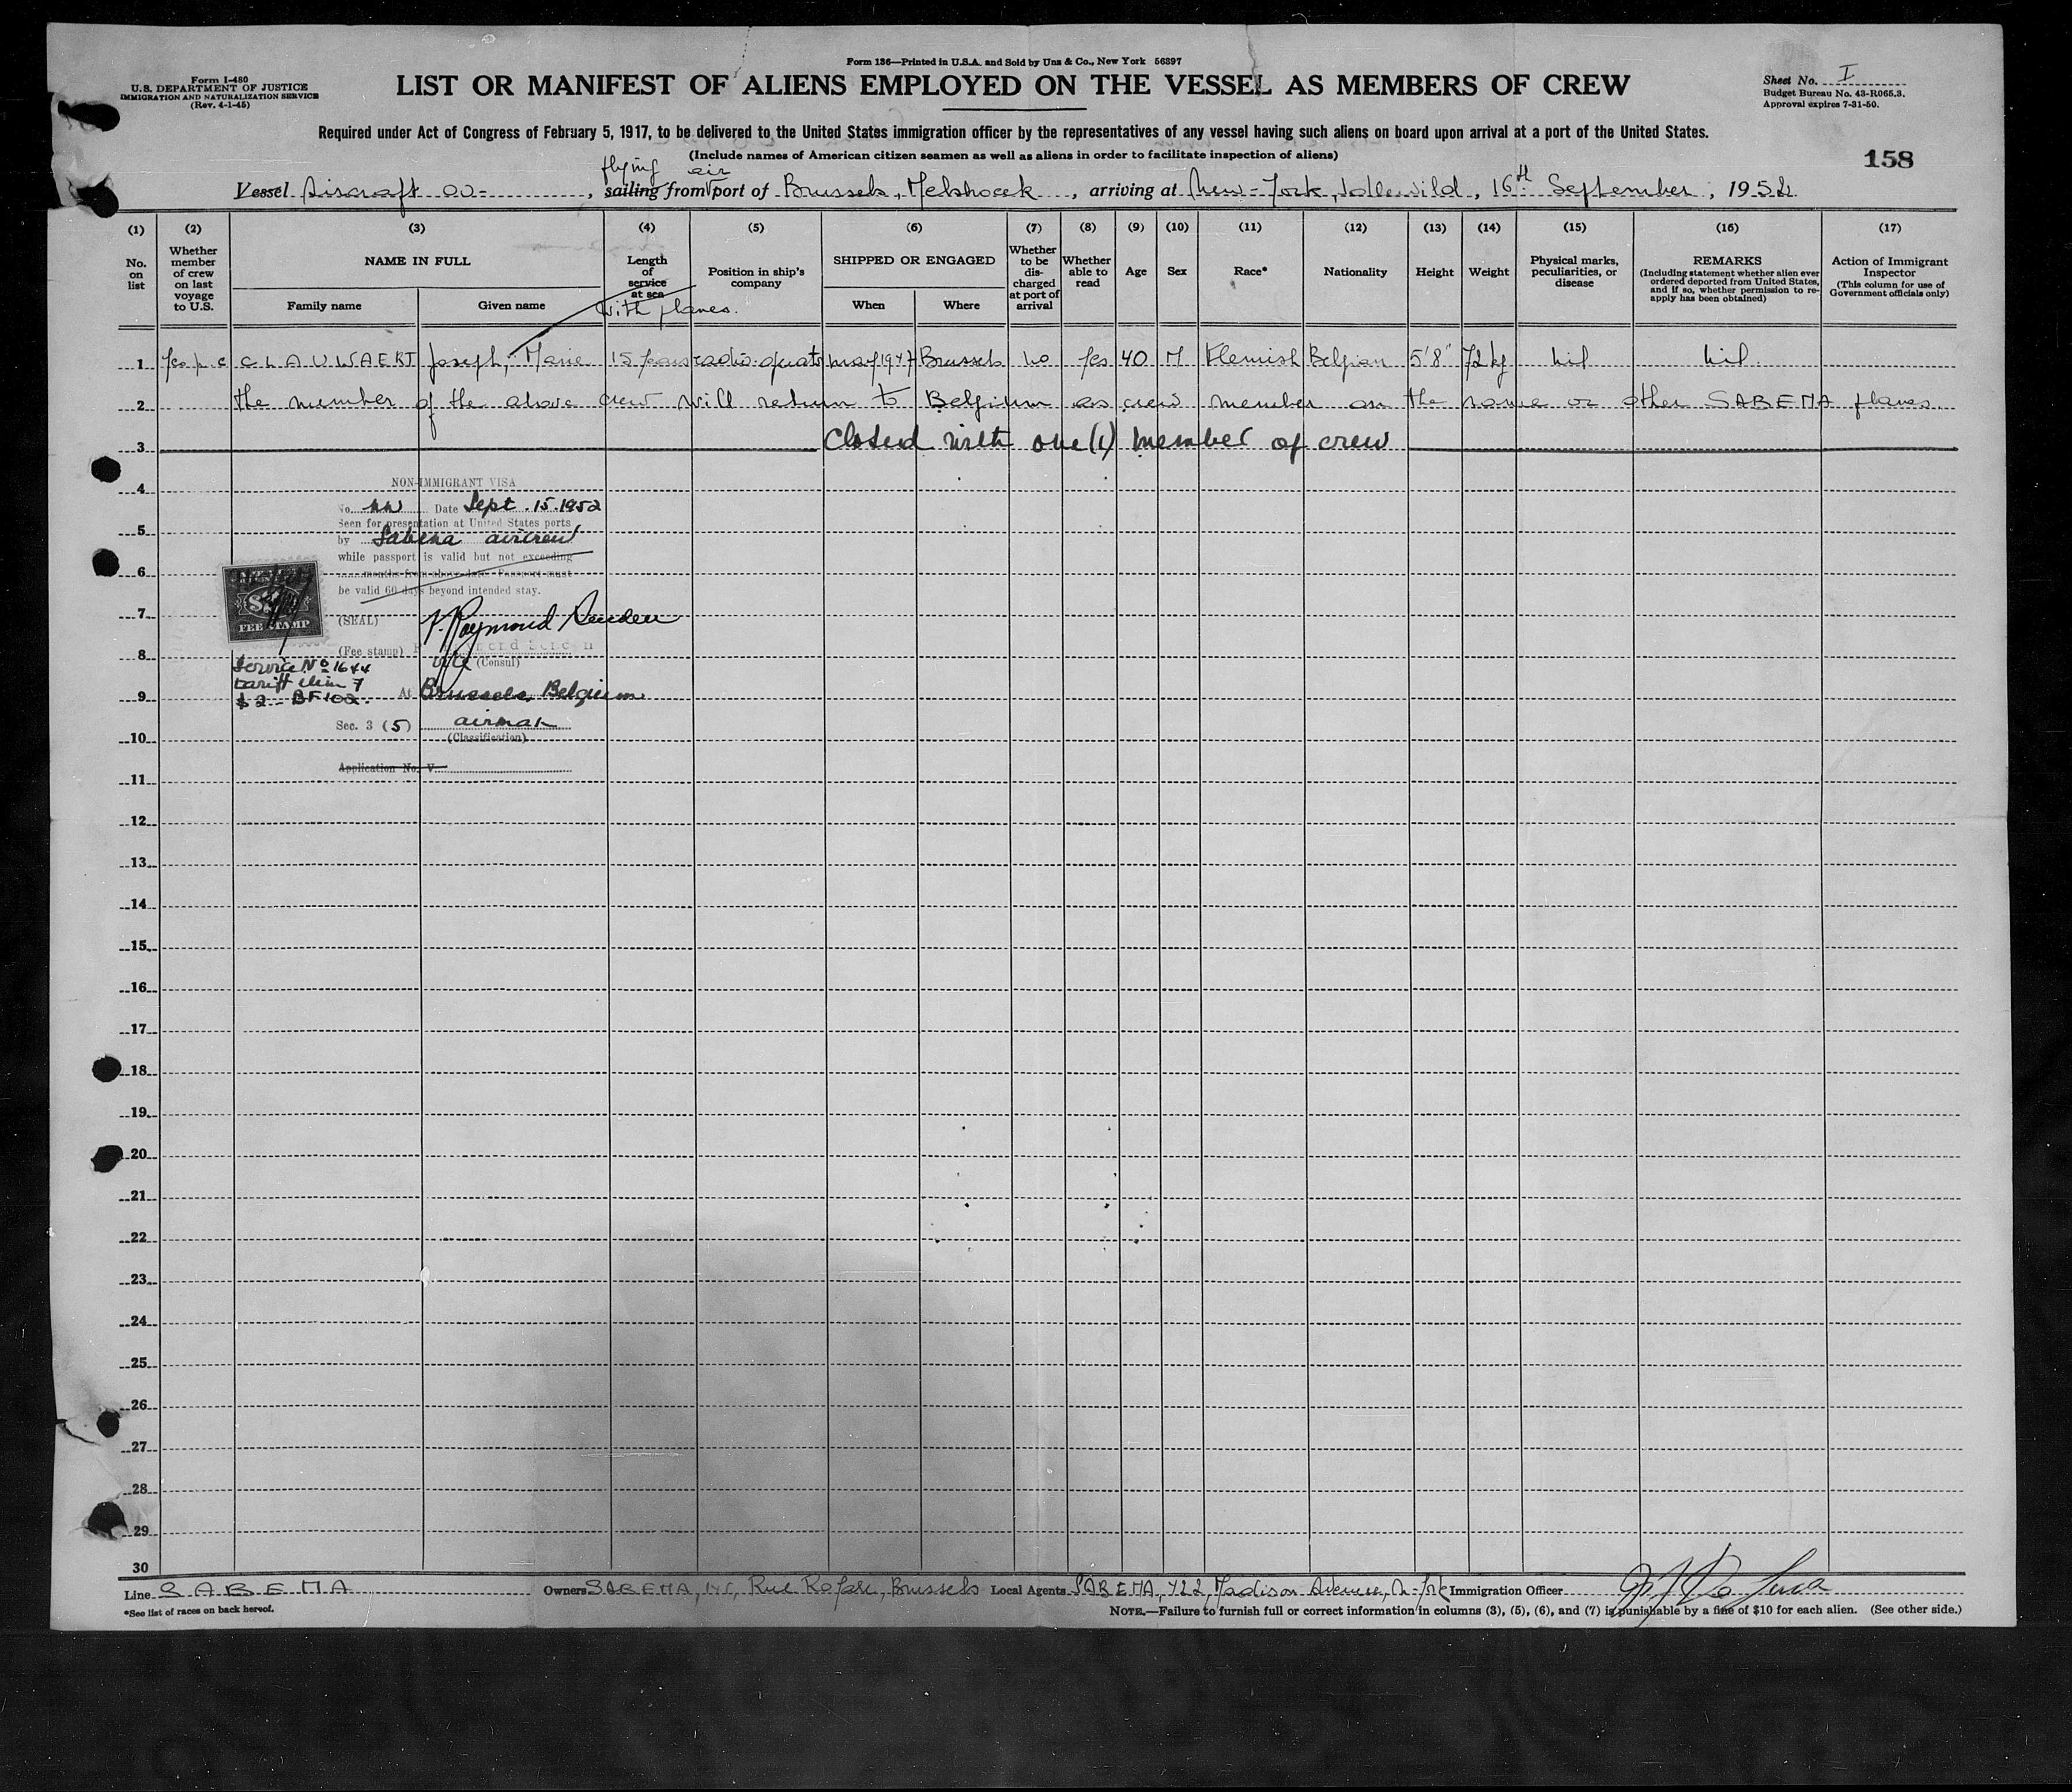 Form 136—Printed in U.S.A. and Sold by Unz & Co., New York 56897
Form I-480
U.S. DEPARTMENT OF JUSTICE
IMMIGRATION AND NATURALIZATION SERVICE
(Rev. 4-1-45)
LIST OR MANIFEST OF ALIENS EMPLOYED ON THE VESSEL AS MEMBERS OF CREW
Sheet No. I
Budget Bureau No. 43-R065.3.
Approval expires 7-31-50.
Required under Act of Congress of February 5, 1917, to be delivered to the United States immigration officer by the representatives of any vessel having such aliens on board upon arrival at a port of the United States.
(Include names of American citizen seamen as well as aliens in order to facilitate inspection of aliens)
158
flying air
Vessel Aircraft oo-, sailing from port of Brussels, Melsbroek, arriving at New-York, Idlewild, 16th September, 1952
(1) (2) (3) (4) (5) (6) (7) (8) (9) (10) (11) (12) (13) (14) (15) (16) (17)
No. on list
Whether member of crew on last voyage to U.S.
NAME IN FULL
Family name
Given name
Length of service at sea
with planes.
Position in ship's company
SHIPPED OR ENGAGED
When
Where
Whether to be discharged at port of arrival
Whether able to read
Age
Sex
Race*
Nationality
Height
Weight
Physical marks, peculiarities, or disease
REMARKS
(Including statement whether alien ever ordered deported from United States, and if so, whether permission to reapply has been obtained)
Action of Immigrant Inspector
(This column for use of Government officials only)
1 CLAUWAERT Joseph, Marie 15 years radio-operator may 1947 Brussels no yes 40 M Flemish Belgian 5'8" 72 kg nil nil.
2 the member of the above crew will return to Belgium as crew member on the same or other SABENA planes.
3 Closed with one (1) member of crew
4
NON-IMMIGRANT VISA
No. Date Sept. 15. 1952
Seen for presentation at United States ports
5
by Sabena aircrew
while passport is valid but not exceeding
6
months from above date. Passport must
be valid 60 days beyond intended stay.
7
FEE STAMP
(SEAL)
(Fee stamp)
8
Vice (Consul)
Service No 1644
tariff item 7
9
$2 - BF 102.
At Brussels, Belgium
Sec. 3 (5) airman
10
(Classification)
Application No. V
11
12
13
14
15
16
17
18
19
20
21
22
23
24
25
26
27
28
29
30
Line SABENA Owners SABENA, 145, Rue Royale, Brussels Local Agents SABENA, 422, Madison Avenue, N-York Immigration Officer
*See list of races on back hereof.
NOTE.—Failure to furnish full or correct information in columns (3), (5), (6), and (7) is punishable by a fine of $10 for each alien. (See other side.)